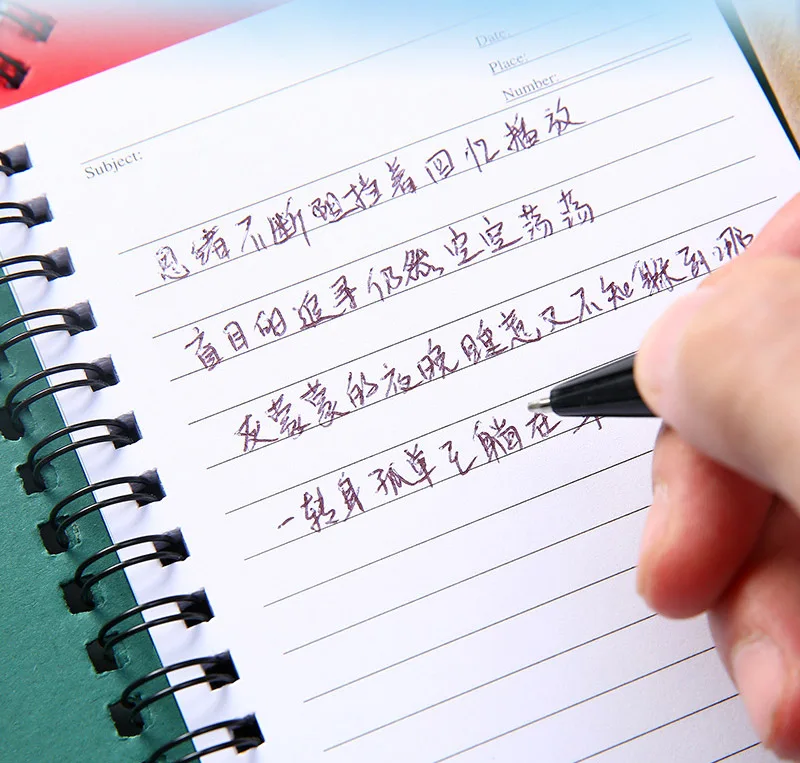 Date:
Place:
Number:
Subject:
思绪不断阻挡着回忆播放
盲目的追寻仍然空空荡荡
灰蒙蒙的夜晚睡意又不知躲到哪
一转身孤单已躺在